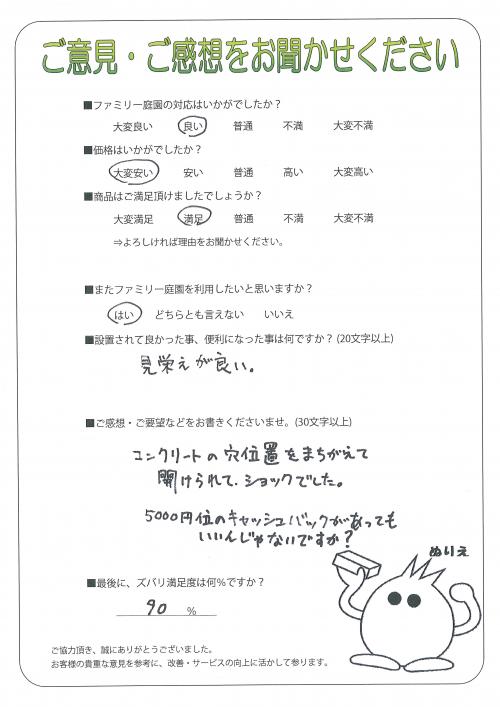 ご意見・ご感想をお聞かせください
■ファミリー庭園の対応はいかがでしたか？
大変良い 良い 普通 不満 大変不満
■価格はいかがでしたか？
大変安い 安い 普通 高い 大変高い
■商品はご満足頂けましたでしょうか？
大変満足 満足 普通 不満 大変不満
⇒よろしければ理由をお聞かせください。
■またファミリー庭園を利用したいと思いますか？
はい どちらとも言えない いいえ
■設置されて良かった事、便利になった事は何ですか？(20文字以上)
見栄えが良い。
■ご感想・ご要望などをお書きくださいませ。(30文字以上)
コンクリートの穴位置をまちがえて
開けられて、ショックでした。
5000円位のキャッシュバックがあっても
いいんじゃないですか？
ぬりえ
■最後に、ズバリ満足度は何％ですか？
90 ％
ご協力頂き、誠にありがとうございました。
お客様の貴重な意見を参考に、改善・サービスの向上に活かして参ります。